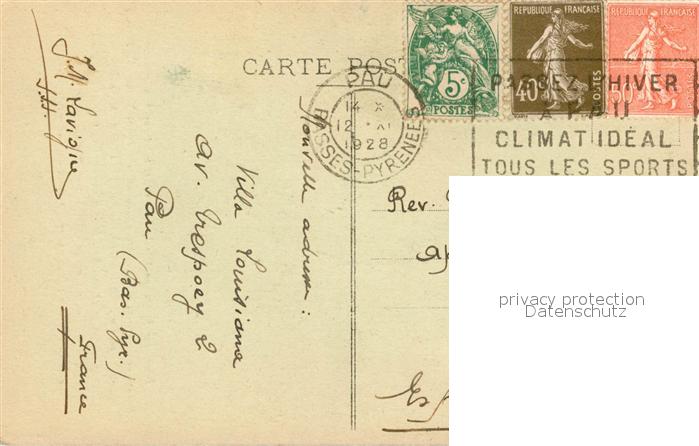 CARTE POST
5c
POSTES
REPUBLIQUE FRANÇAISE
40c
POSTES
REPUBLIQUE FRANÇAISE
50c
PAU
14 X
12 XI
1928
BASSES-PYRENEES
PASSEZ L'HIVER
A PAU
CLIMAT IDÉAL
TOUS LES SPORTS
J. M. Lavigne
Nouvelle adresse :
Villa Louisiane
Av. Trespoey 2
Pau (Bas. Pyr.)
France
Rev.
privacy protection
Datenschutz